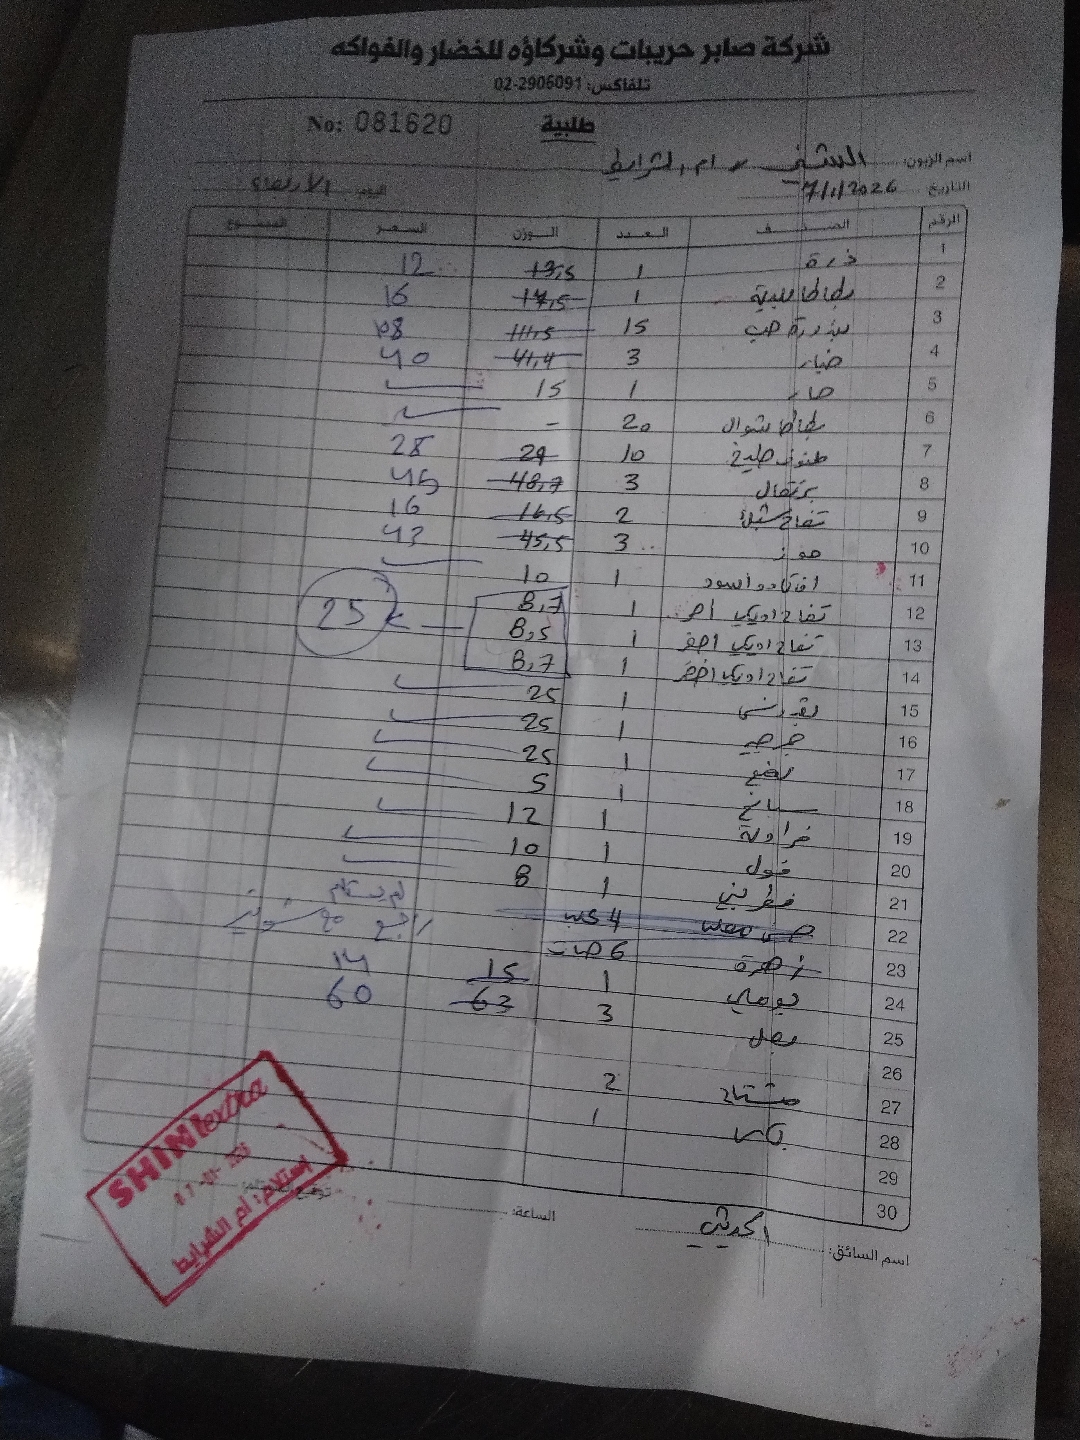 شركة صابر حريبات وشركاؤه للخضار والفواكه
تلفاكس: 02-2906091
No: 081620 طلبية
اسم الزبون: الشني ام الشرايط
التاريخ 7/1/2026 اليوم: الأربعاء
الرقم الصنف العدد الوزن السعر المجموع
1 ذرة 1 13,5 12
2 بطاطا بلدية 1 17,5 16
3 بندورة حب 15 111,5 108
4 خيار 3 41,4 40
5 حار 1 15
6 بطاطا شوال 20 -
7 10 29 28
8 برتقال 3 48,7 45
9 تفاح 2 16,5 16
10 موز 3 45,5 43
11 افكادو اسود 1 10
12 تفاح اوبك احمر 1 8,7
13 تفاح اوبك اصفر 1 8,5 25
14 تفاح اوبك اخضر 1 8,7
15 بقدونس 1 25
16 جرجير 1 25
17 نعنع 1 25
18 سبانخ 1 5
19 فراولة 1 12
20 فول 1 10
21 فطر بني 1 8 لم يستلم
22 4
23 زهرة 6
24 بوملي 1 15 14
25 بصل 3 63 60
26
27 مشتاح 2
28 1
29
30
اسم السائق: الساعة:
SHINI extra
07-01-2026
إستلام: أم الشرايط